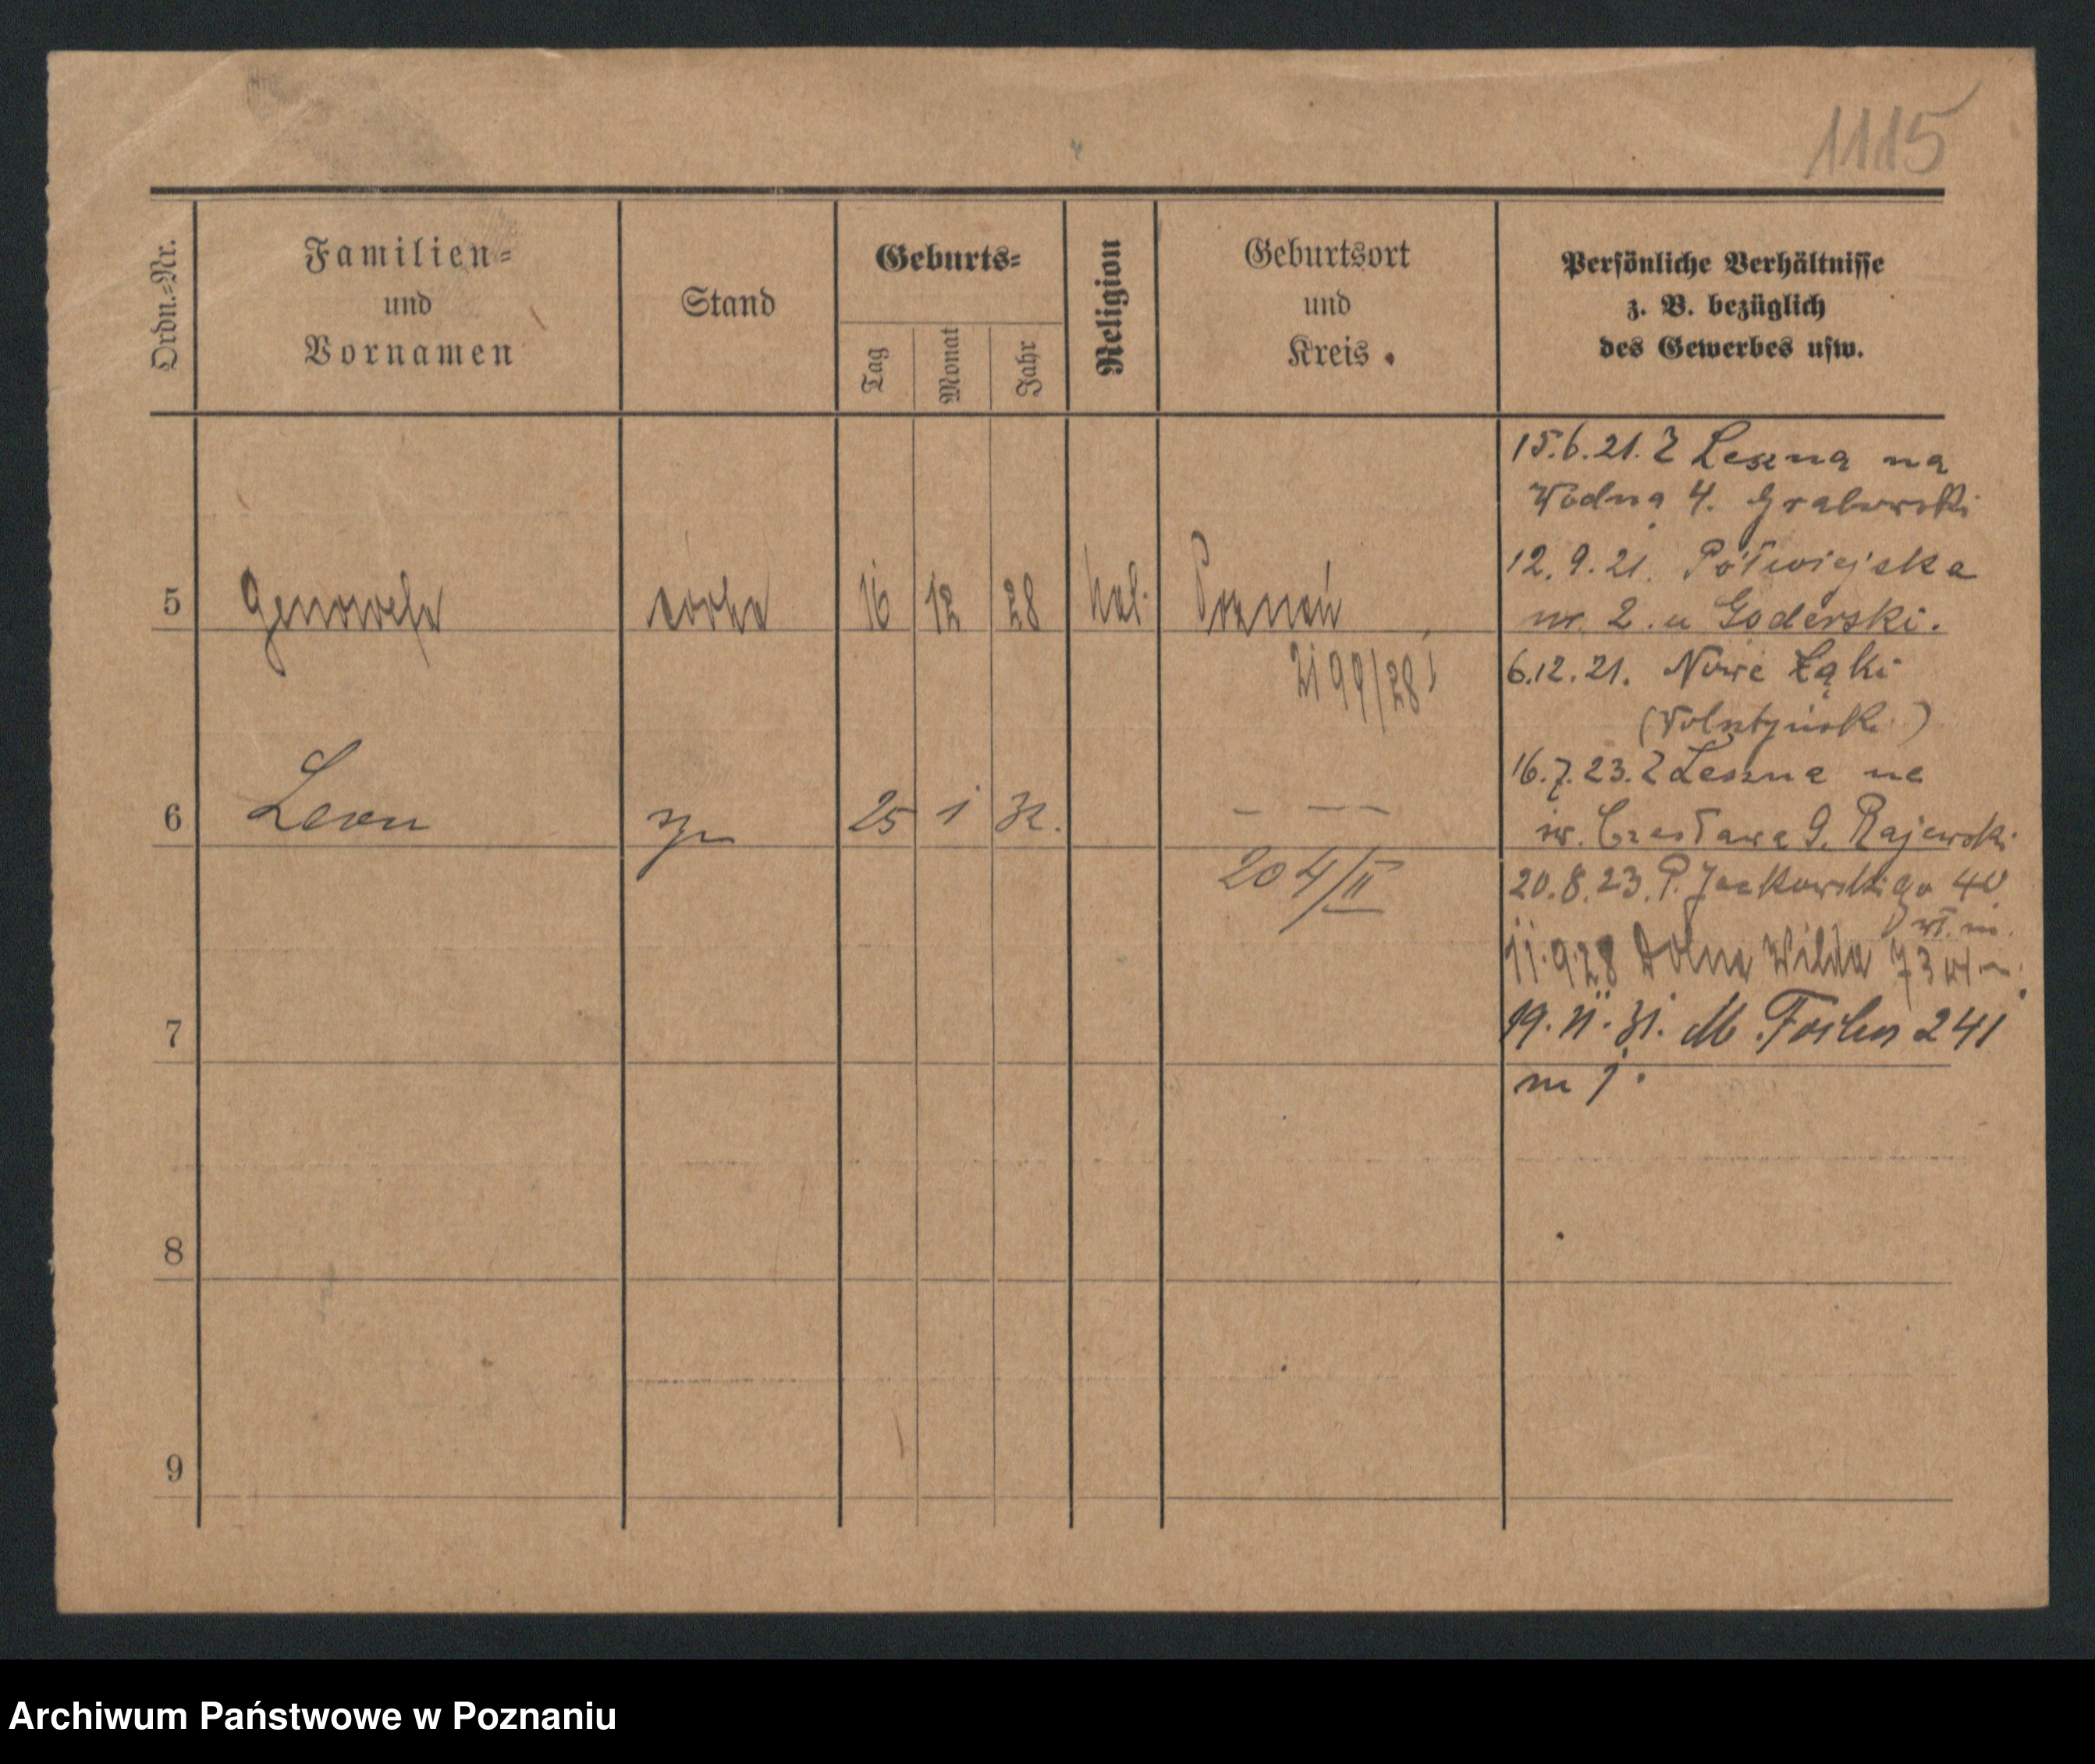 1115
Ordn.-Nr.
Familien-
und
Vornamen
Stand
Geburts-
Tag
Monat
Jahr
Religion
Geburtsort
und
Kreis
Persönliche Verhältnisse
z. B. bezüglich
des Gewerbes usw.
15.6.21. Z Leszna na
Wodna 4. Grabowski
12.9.21. Półwiejska
5 Genowefa córka 16 12 28 kat. Poznań
nr. 2. u Goderski.
2199/28
6.12.21. Nowe Łąki
16.7.23. Z Leszna na
6 Leon syn 25 1 32. — —
św. Czesława 9. Rajewski
204/II
20.8.23. P. Jackowskiego 40
wł. m.
11.9.28 Dolna Wilda 73 wł. m.
7
19.11.31. M. Focha 241
m 1.
8
9
Archiwum Państwowe w Poznaniu